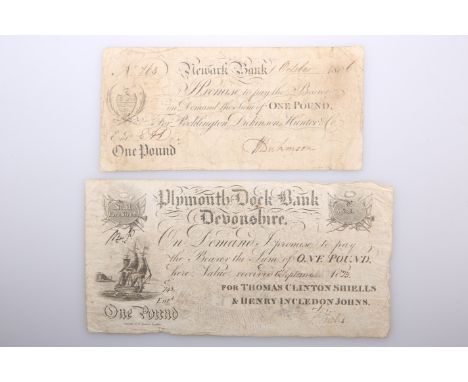 No. 765
Newark Bank October
I Promise to pay the Bearer
on Demand the Sum of ONE POUND,
For Pocklington, Dickinson, Hunter & Co.
Entd.
Dickinson
One Pound
Plymouth Dock Bank
Devonshire.
On Demand I promise to pay
the Bearer the Sum of ONE POUND,
here, Value received
FOR THOMAS CLINTON SHIELLS
& HENRY INCLEDON JOHNS.
Entd.
One Pound